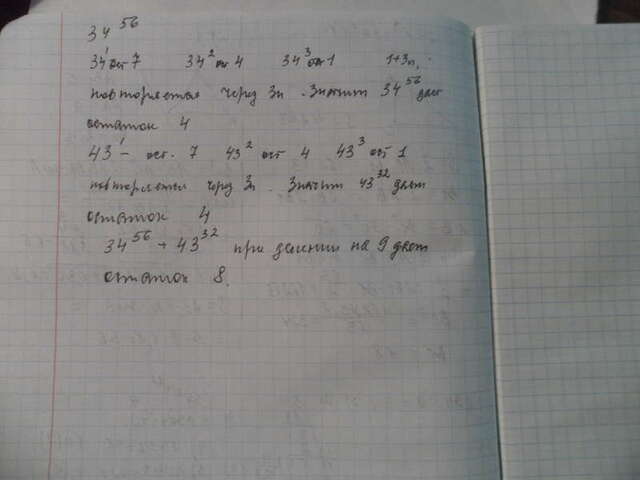 34^56
34^1 ост 7 34^2 ост 4 34^3 ост 1 1+3n,
повторяется через 3n. Значит 34^56 дает
остаток 4
43^1 - ост. 7 43^2 ост 4 43^3 ост 1
повторяется через 3n. Значит 43^32 дает
остаток 4
34^56 + 43^32 при делении на 9 дает
остаток 8.